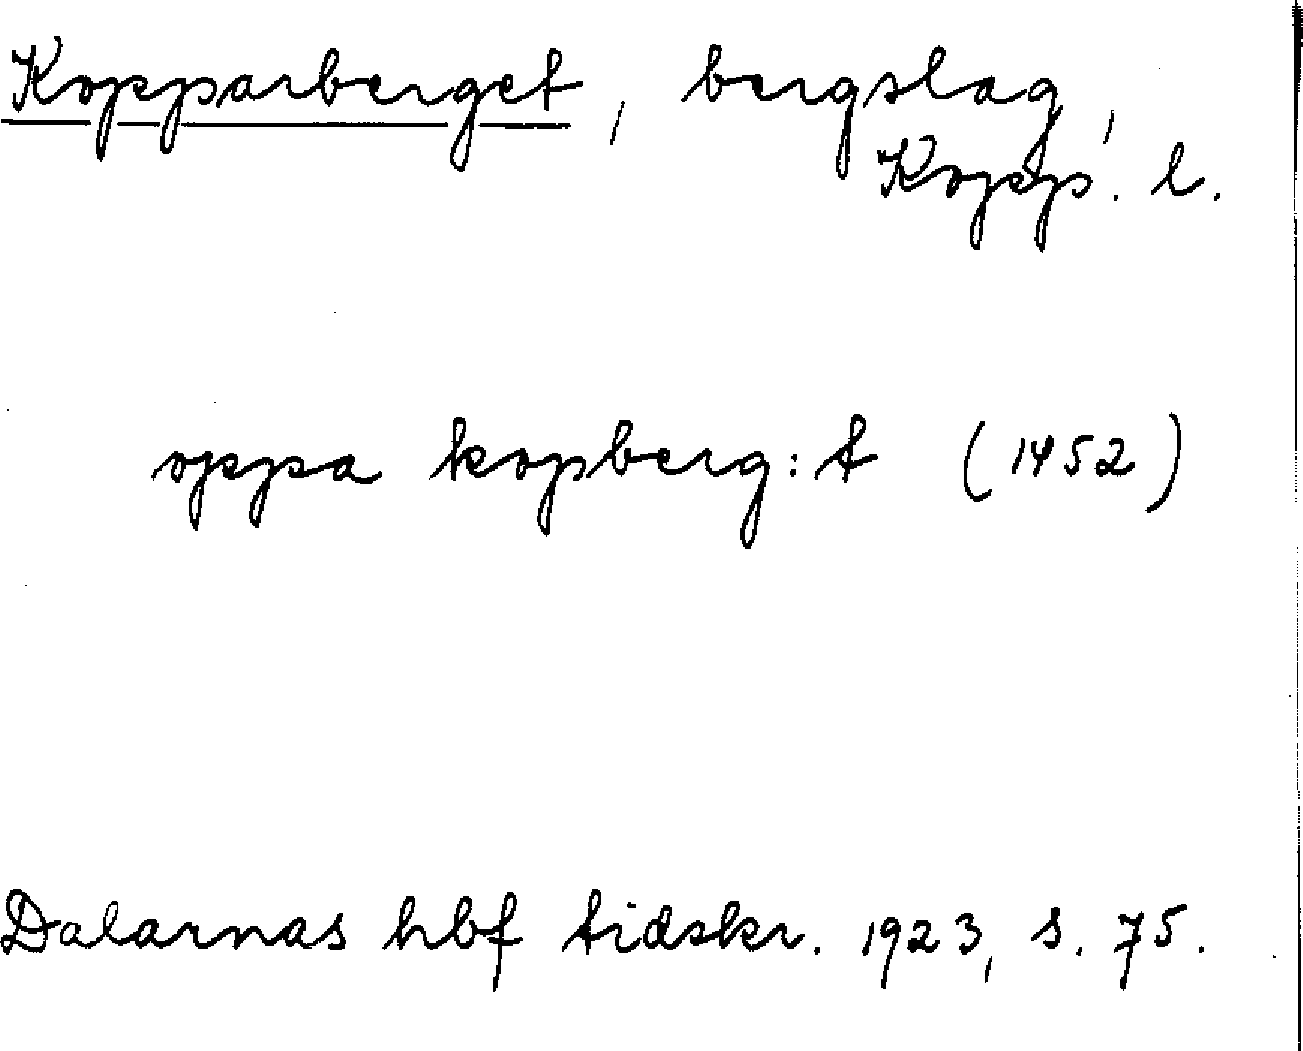 Kopparberget, bergslag,
Kopp. l.
oppa kopberg:t (1452)
Dalarnas hbf tidskr. 1923, s. 75.